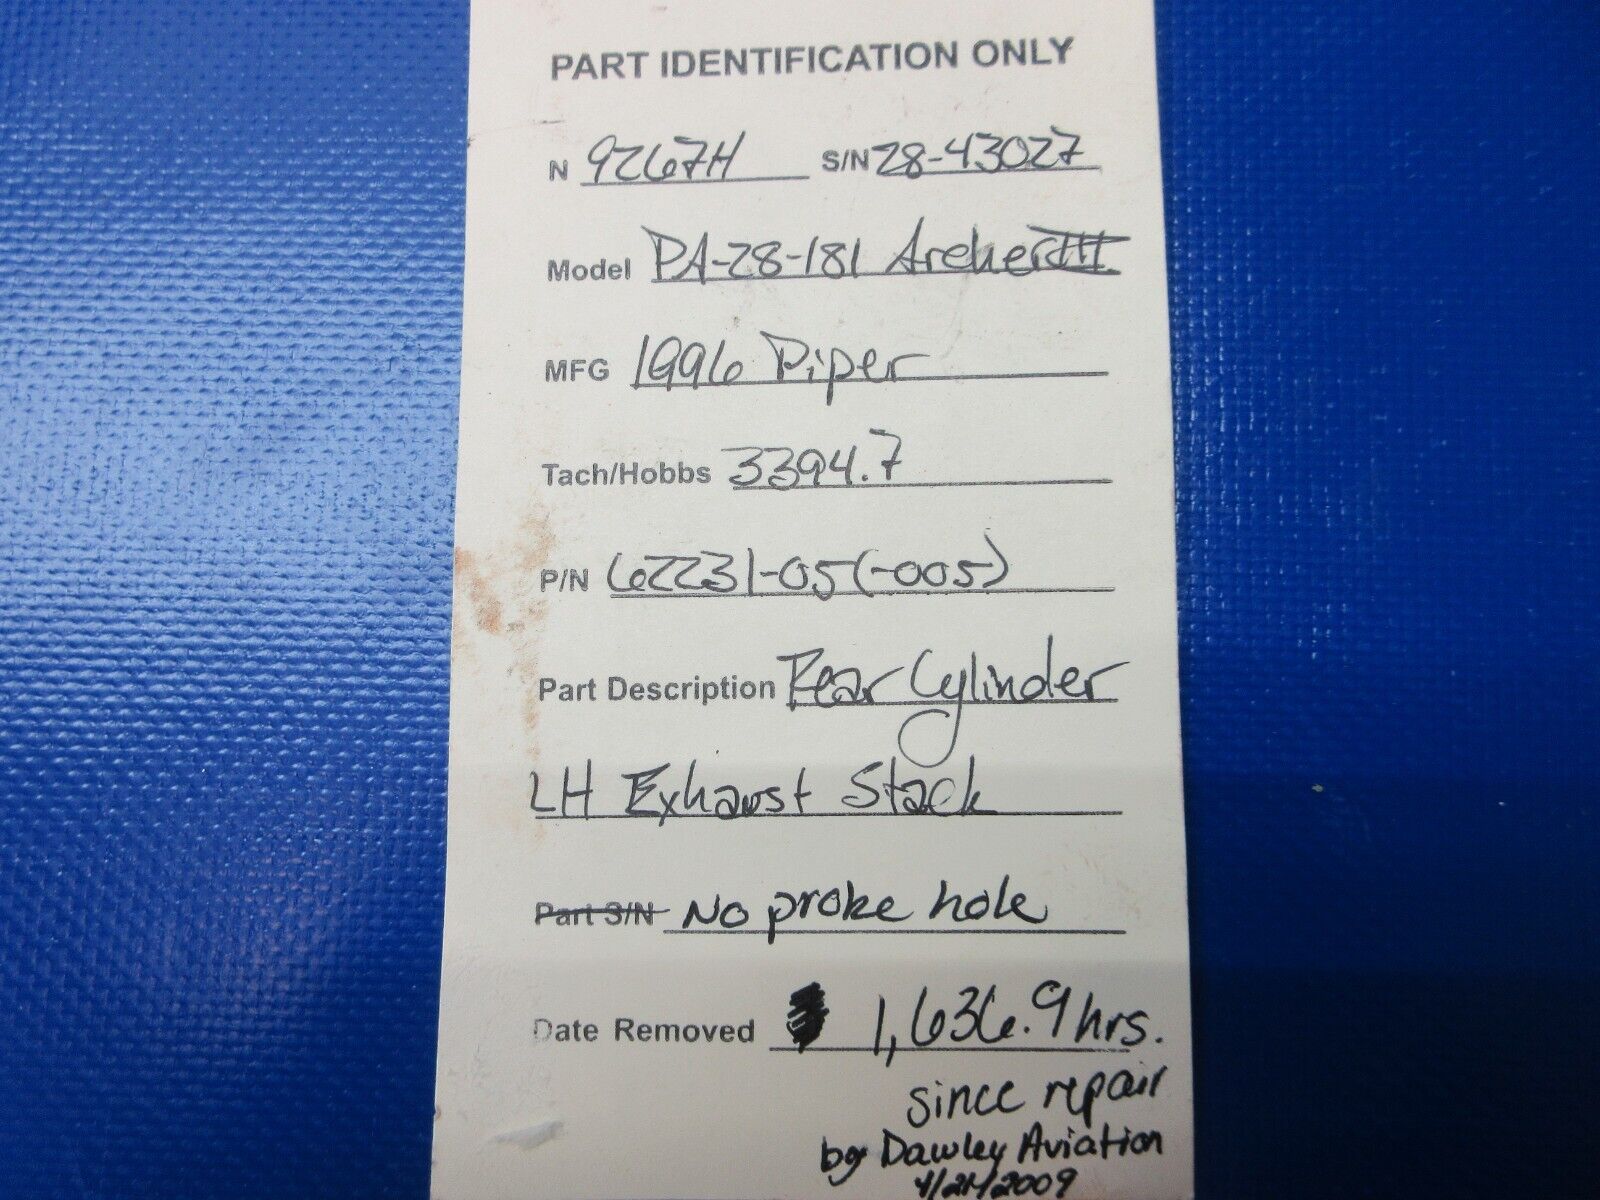 PART IDENTIFICATION ONLY
N 9267H S/N 28-43027
Model PA-28-181 Archer III
MFG 1996 Piper
Tach/Hobbs 3394.7
P/N 62231-05(-005)
Part Description Rear Cylinder
LH Exhaust Stack
Part S/N No probe hole
Date Removed 1,636.9 hrs.
since repair
by Dawley Aviation
4/21/2009